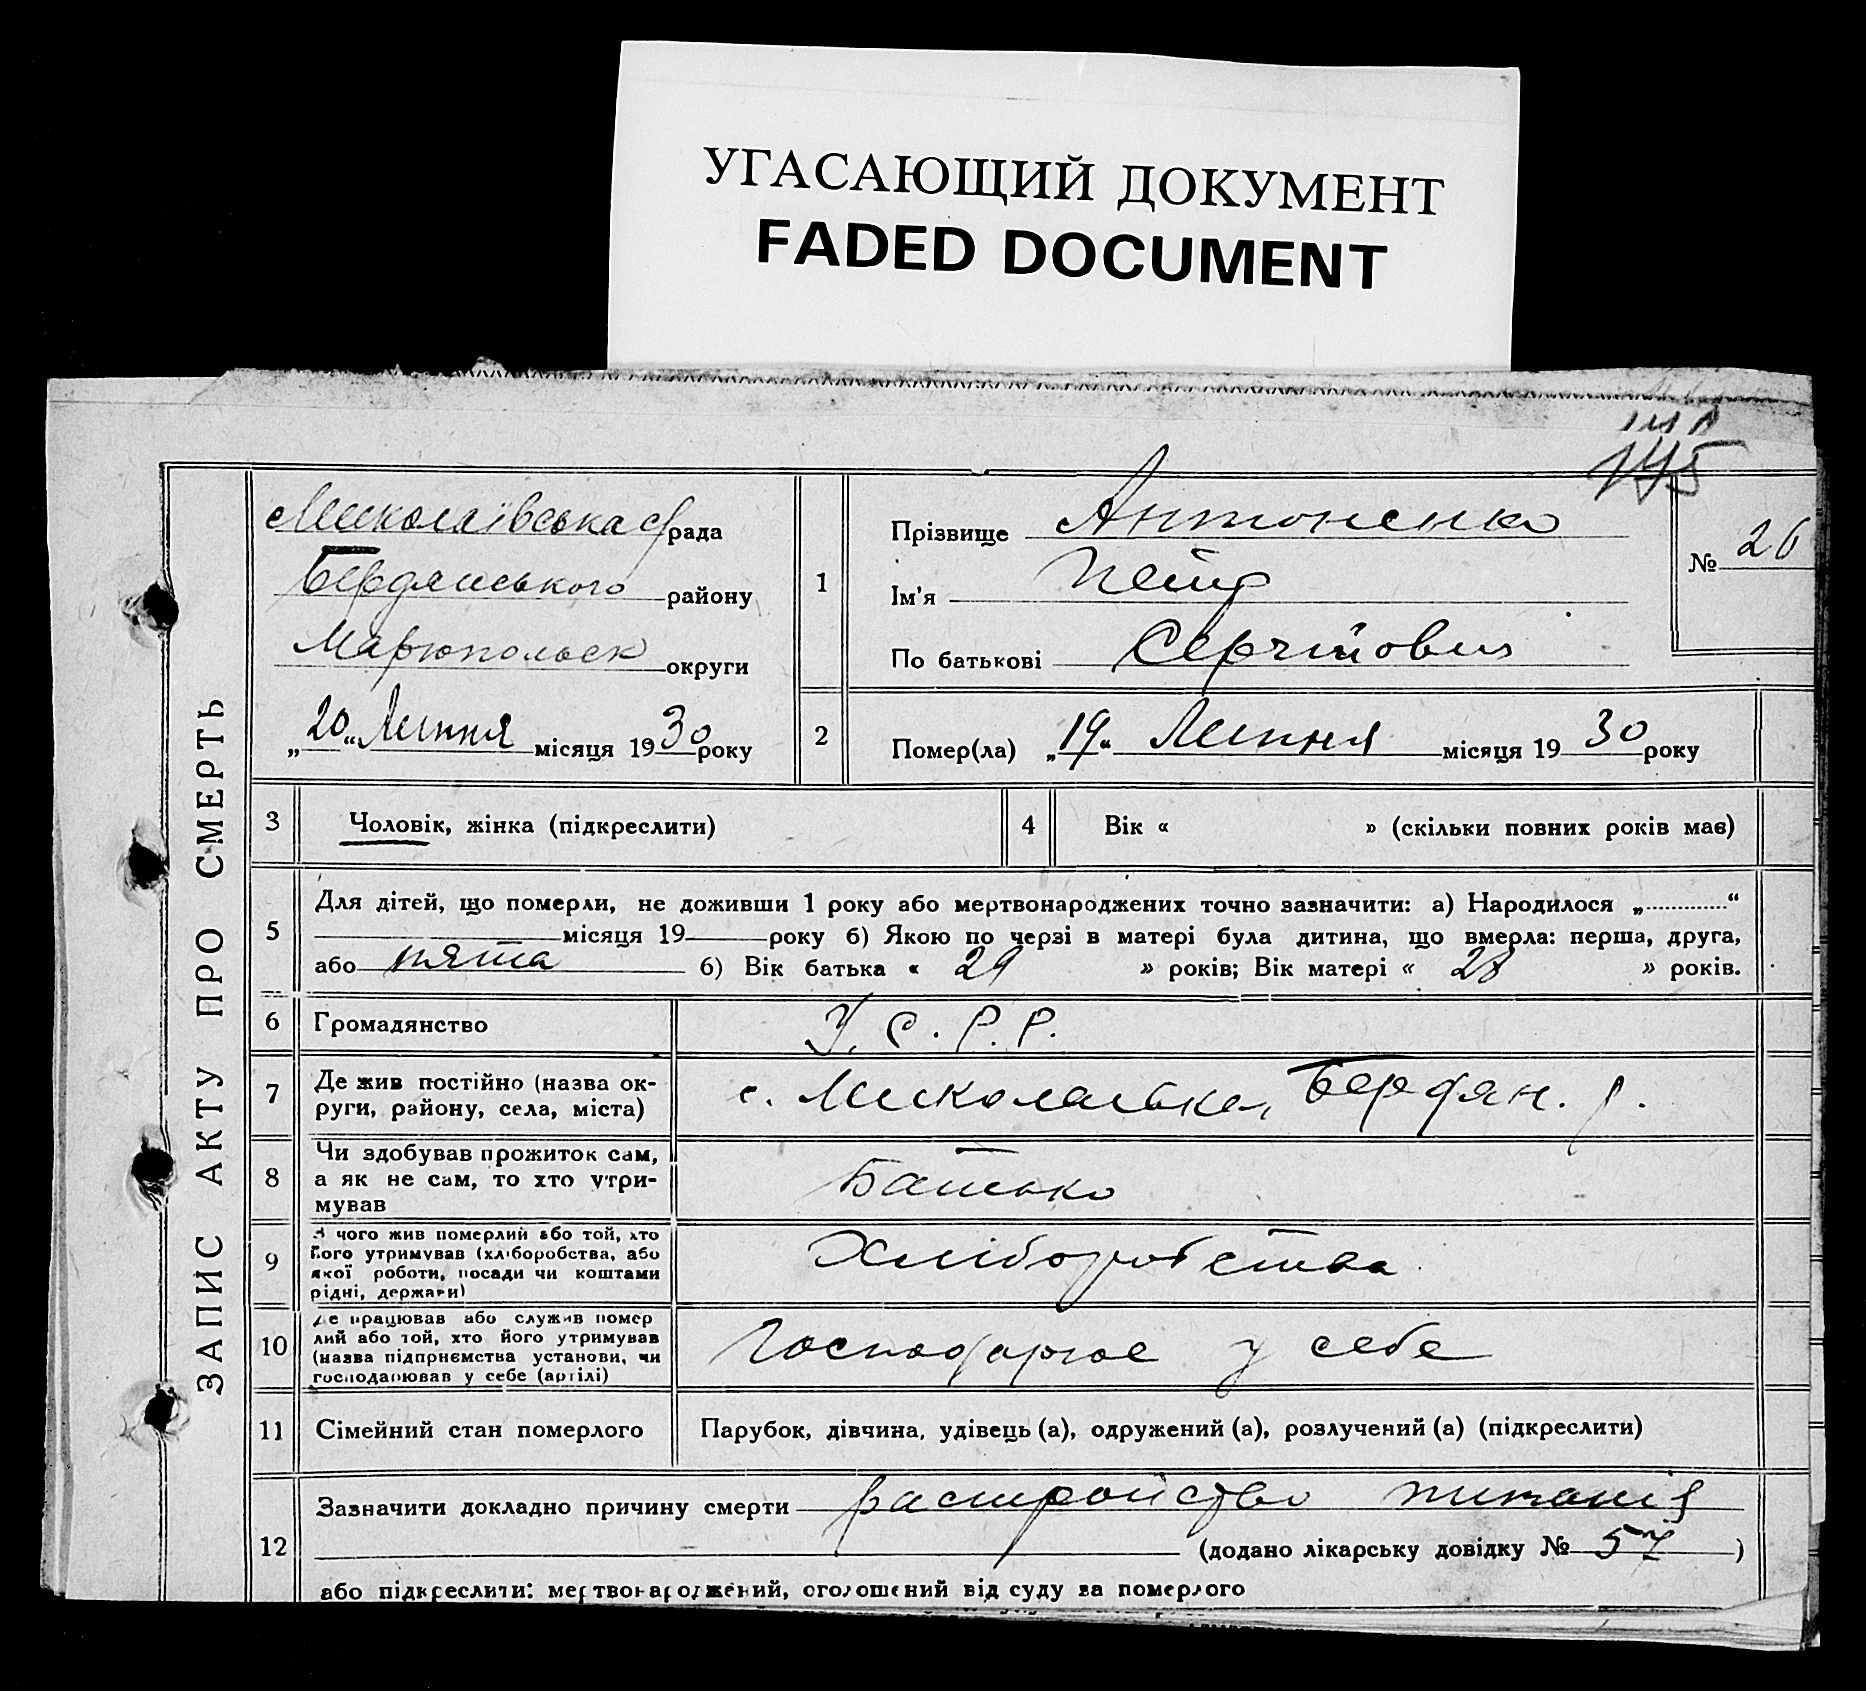 УГАСАЮЩИЙ ДОКУМЕНТ
FADED DOCUMENT
145
ЗАПИС АКТУ ПРО СМЕРТЬ
Миколаївська с/рада
Бердянського району
Марюпольськ округи
„20“ Липня місяця 1930 року
1
Прізвище Антоненко
Ім'я Петро
По батькові Сергійович
№ 26
2
Помер(ла) „19“ Липня місяця 1930 року
3 Чоловік, жінка (підкреслити)
4 Вік « » (скільки повних років має)
5 Для дітей, що померли, не доживши 1 року або мертвонароджених точно зазначити: а) Народилося „............“
місяця 19 року б) Якою по черзі в матері була дитина, що вмерла: перша, друга,
або пята б) Вік батька « 29 » років; Вік матері « 28 » років.
6 Громадянство У.С.Р.Р.
7 Де жив постійно (назва ок-
руги, району, села, міста)
с. Миколаївка, Бердян. р.
8 Чи здобував прожиток сам,
а як не сам, то хто утри-
мував
Батько
9 З чого жив померлий або той, хто
його утримував (хліборобства, або
якої роботи, посади чи коштами
рідні, держави)
Хліборобства
10 Де працював або служив помер
лий або той, хто його утримував
(назва підприємства установи, чи
господарював у себе (артілі)
Господарює у себе
11 Сімейний стан померлого Парубок, дівчина, удівець (а), одружений (а), розлучений (а) (підкреслити)
12 Зазначити докладно причину смерти расстройство питанія
(додано лікарську довідку № 57 )
або підкреслити: мертвонароджений, оголошений від суду за померлого